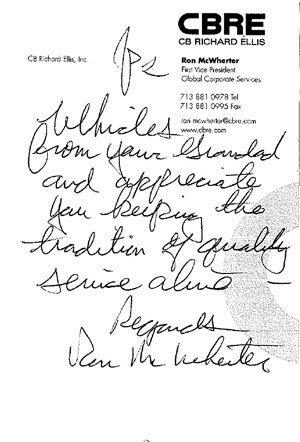 CBRE
CB RICHARD ELLIS
CB Richard Ellis, Inc.
Ron McWherter
First Vice President
Global Corporate Services
713 881 0978 Tel
713 881 0995 Fax
ron.mcwherter@cbre.com
www.cbre.com
Vehicles
from your Grandad
and appreciate
you keeping the
tradition of quality
service alive –
Regards
Ron McWherter